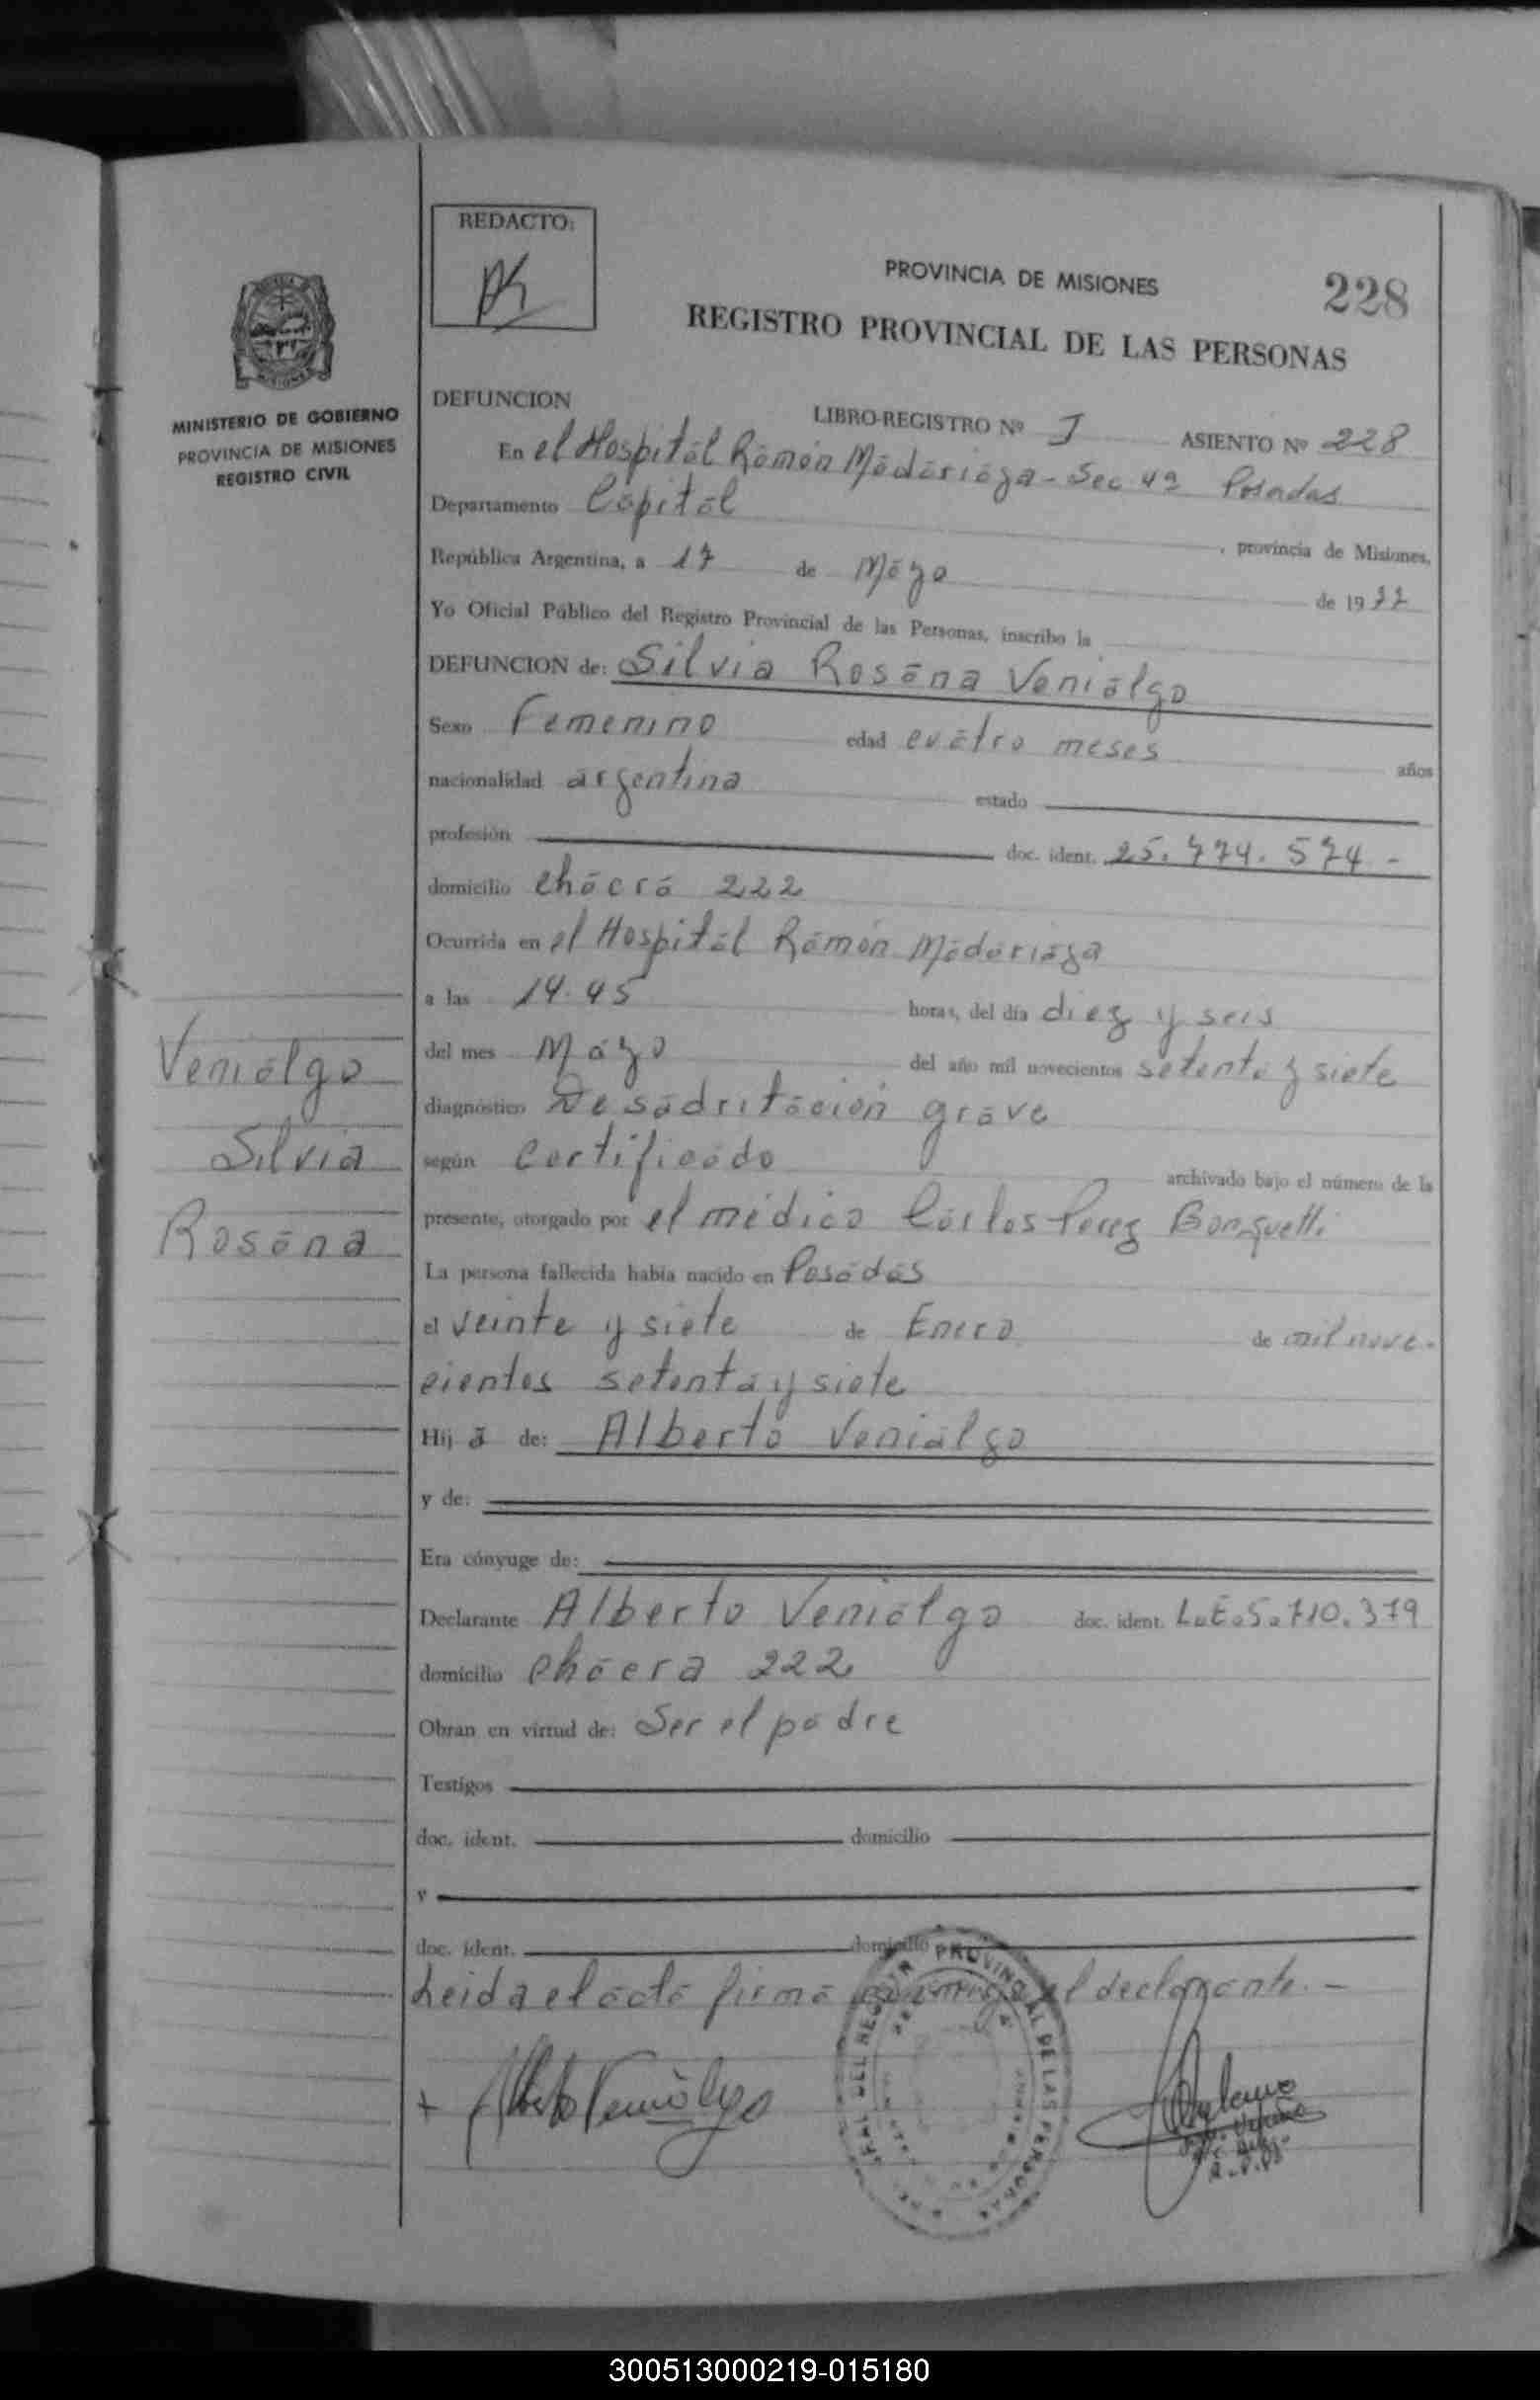 REDACTO:
PROVINCIA DE MISIONES
228
REGISTRO PROVINCIAL DE LAS PERSONAS
MINISTERIO DE GOBIERNO
PROVINCIA DE MISIONES
REGISTRO CIVIL
DEFUNCION LIBRO-REGISTRO Nº I ASIENTO Nº 228
En el Hospital Ramón Madariaga - Sec 4ª Posadas
Departamento Capital, provincia de Misiones,
República Argentina, a 17 de Mayo de 1977
Yo Oficial Público del Registro Provincial de las Personas, inscribo la
DEFUNCION de: Silvia Rosana Venialgo
Sexo Femenino edad cuatro meses años
nacionalidad argentina estado
profesión doc. ident. 25.774.574.-
domicilio chacra 222
Ocurrida en el Hospital Ramón Madariaga
a las 14.45 horas, del día diez y seis
del mes Mayo del año mil novecientos setenta y siete
diagnóstico Desadritación grave
según certificado archivado bajo el número de la
presente, otorgado por el médico Carlos Perez
La persona fallecida había nacido en Posadas
el veinte y siete de Enero de mil nove-
cientos setenta y siete
Hij a de: Alberto Venialgo
y de:
Era cónyuge de:
Declarante Alberto Venialgo doc. ident. L.E. 5.710.379
domicilio chacra 222
Obran en virtud de: Ser el padre
Testigos
doc. ident. domicilio
y
doc. ident. domicilio
Leida el acta firma conmigo el declarante.-
Alberto Venialgo
Venialgo
Silvia
Rosana
300513000219-015180